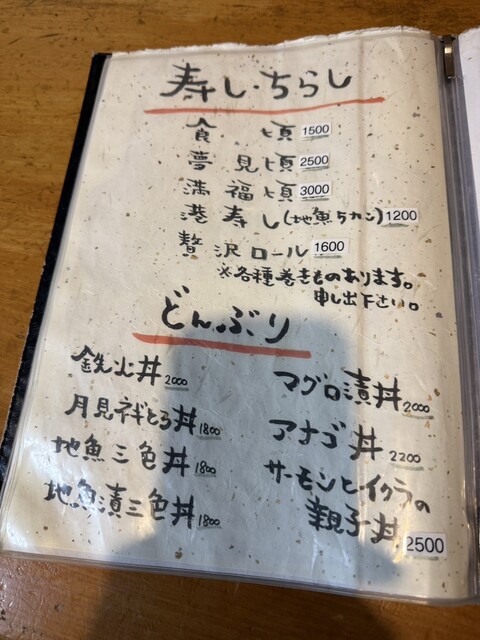 寿し・ちらし
食 頃 1500
夢見頃 2500
満福頃 3000
港寿し(地魚5カン) 1200
贅沢ロール 1600
※各種巻きものあります。
申し出下さい。
どんぶり
鉄火丼 2000
月見ネギとろ丼 1800
地魚三色丼 1800
地魚漬三色丼 1800
マグロ漬丼 2000
アナゴ丼 2200
サーモンとイクラの
親子丼 2500